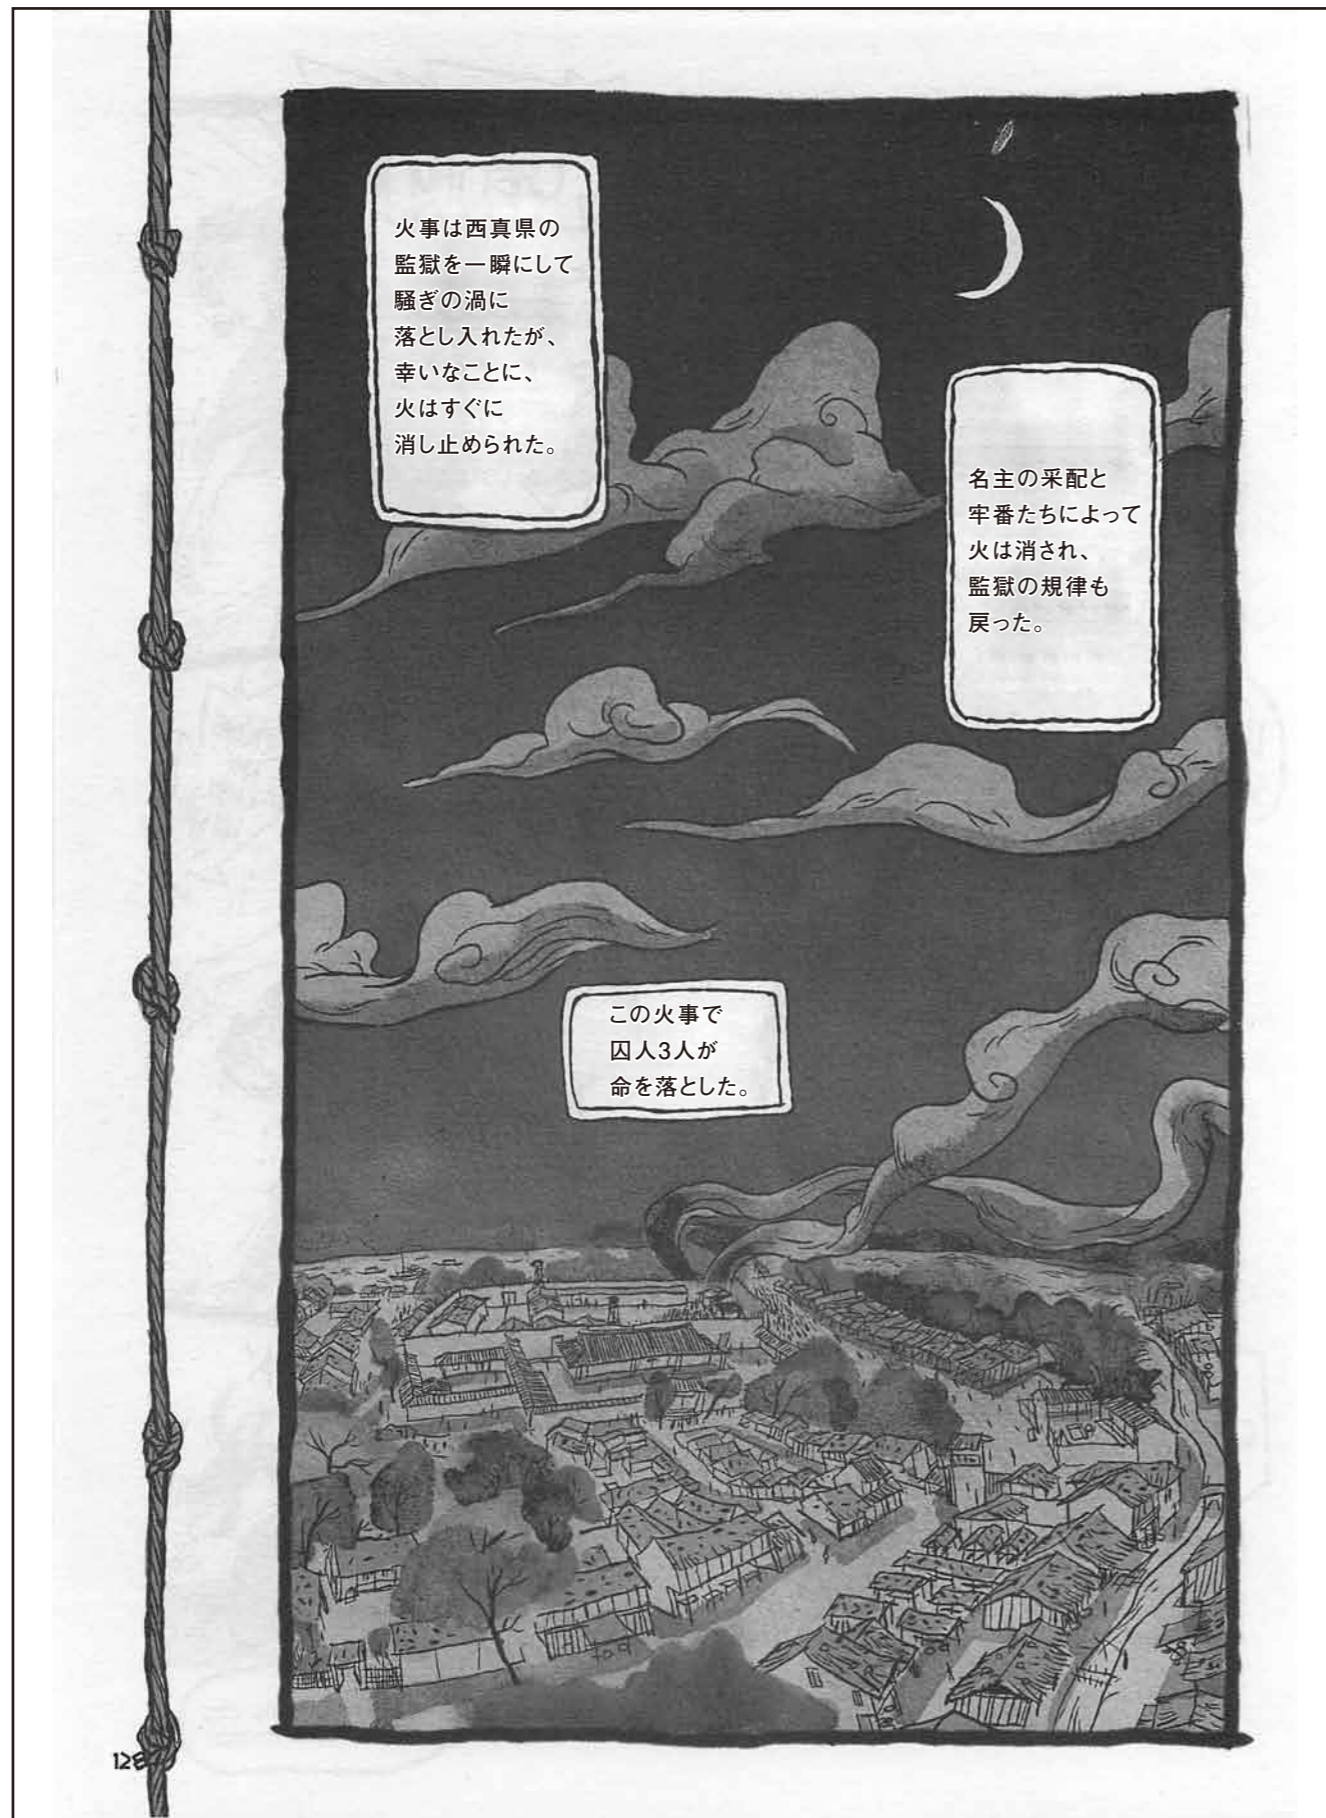 火事は西真県の
監獄を一瞬にして
騒ぎの渦に
落とし入れたが、
幸いなことに、
火はすぐに
消し止められた。
名主の采配と
牢番たちによって
火は消され、
監獄の規律も
戻った。
この火事で
囚人3人が
命を落とした。
128